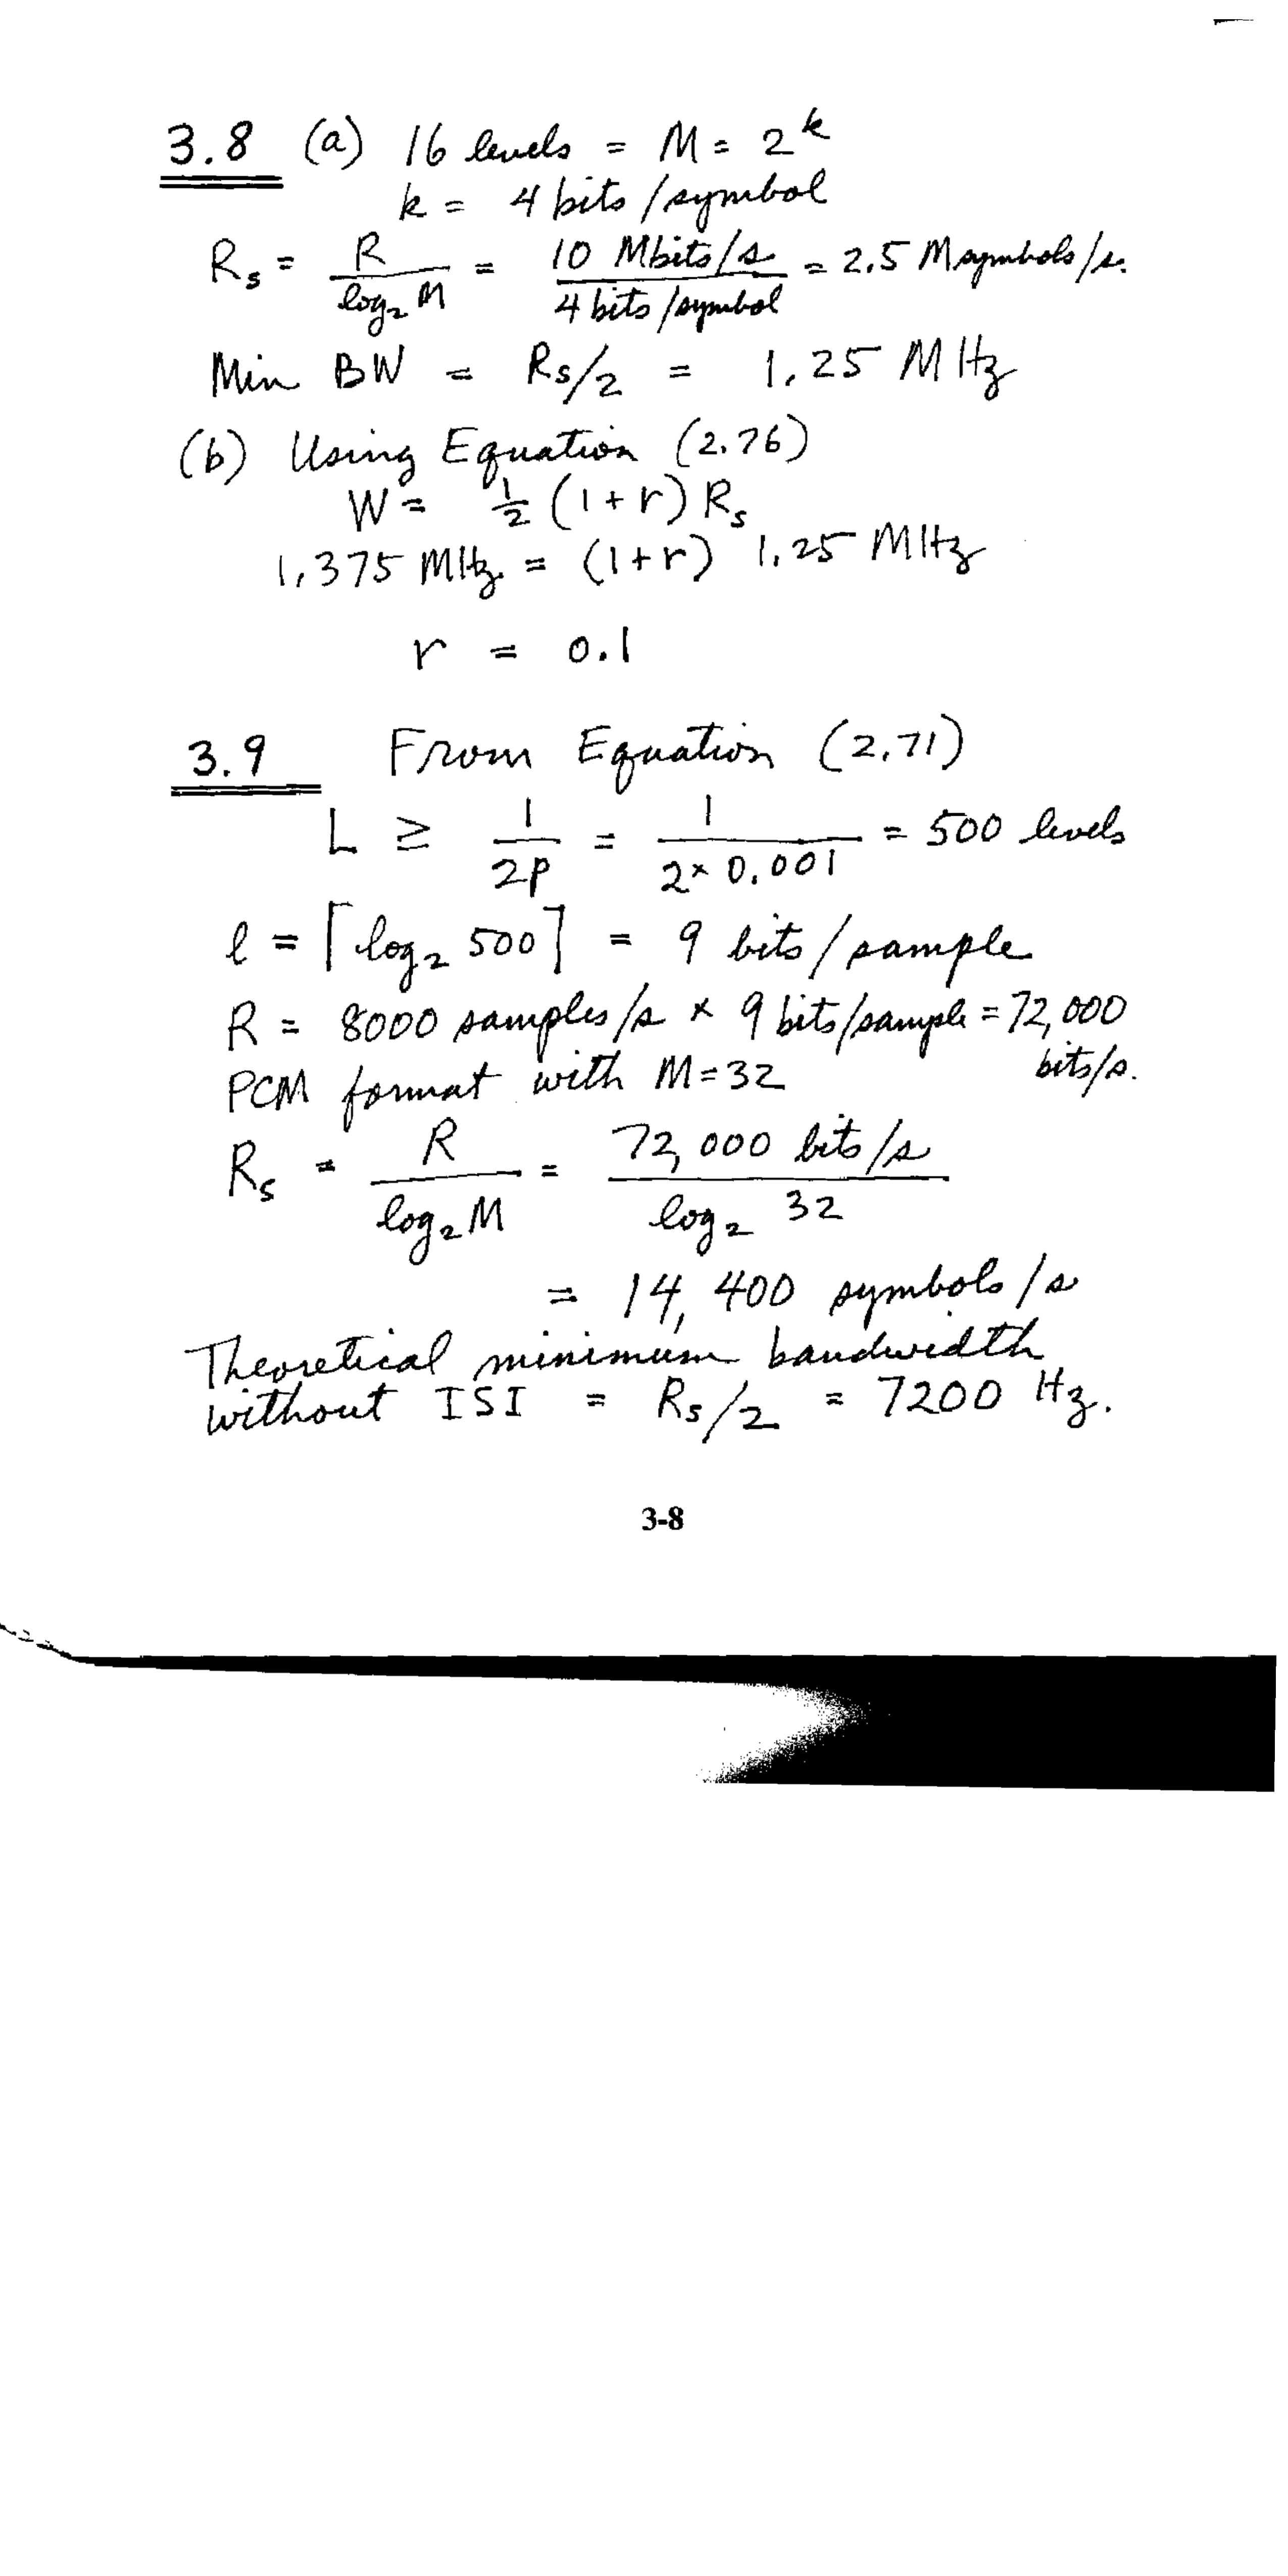 3.8 (a) 16 levels = M = 2^k
k = 4 bits/symbol
R_s = R / log_2 M = 10 Mbits/s / 4 bits/symbol = 2.5 Msymbols/s.
Min BW = R_s/2 = 1.25 MHz
(b) Using Equation (2.76)
W = 1/2 (1+r) R_s
1.375 MHz = (1+r) 1.25 MHz
r = 0.1
3.9 From Equation (2.71)
L ≥ 1 / 2p = 1 / 2 × 0.001 = 500 levels
ℓ = ⌈log_2 500⌉ = 9 bits/sample
R = 8000 samples/s × 9 bits/sample = 72,000
bits/s.
PCM format with M=32
R_s = R / log_2 M = 72,000 bits/s / log_2 32
= 14,400 symbols/s
Theoretical minimum bandwidth
without ISI = R_s/2 = 7200 Hz.
3-8